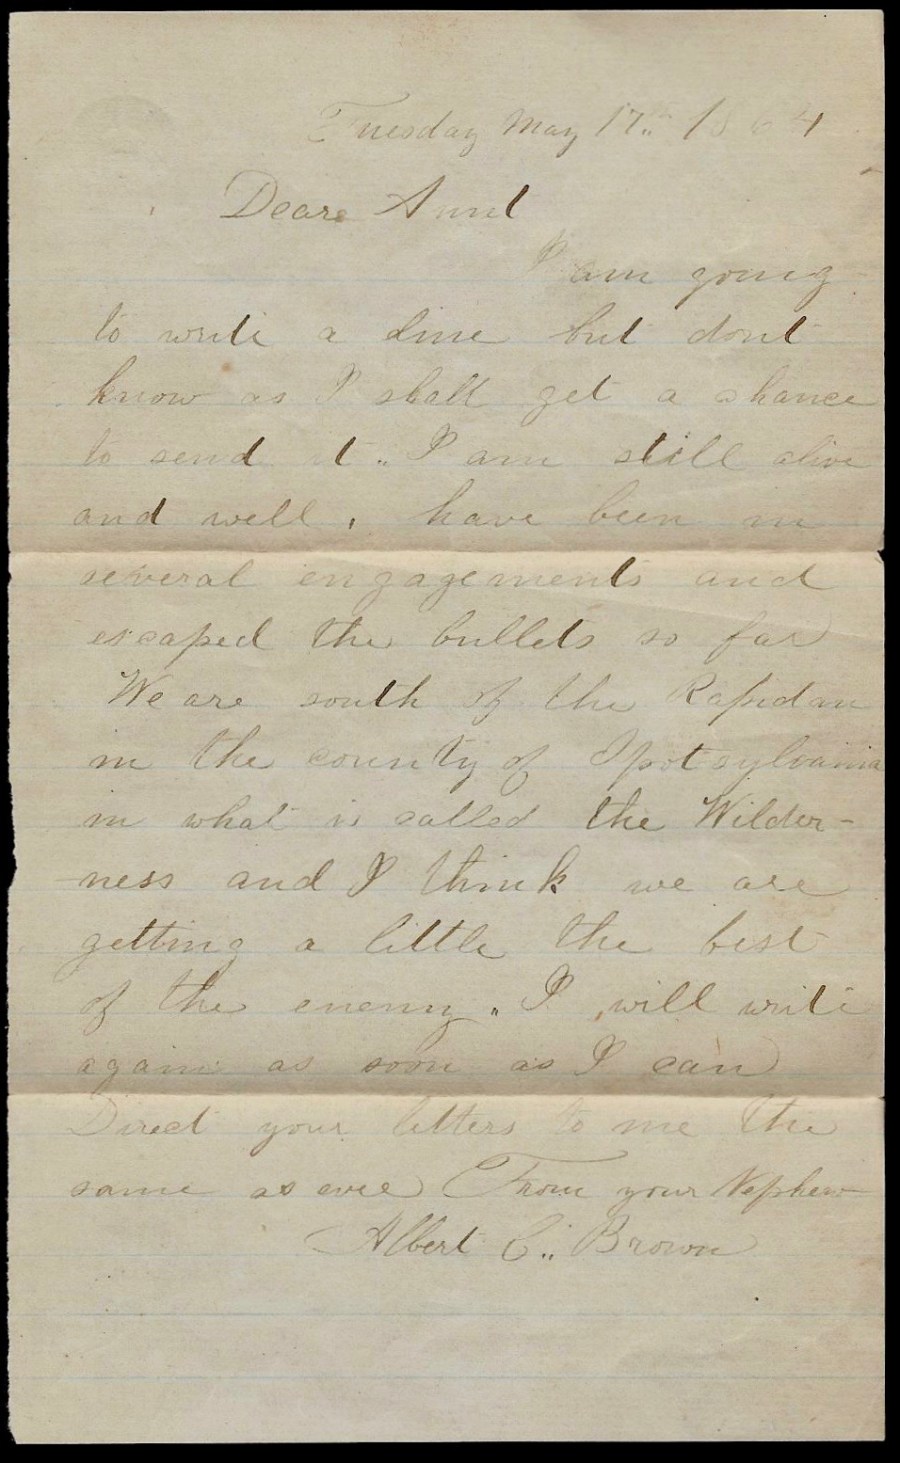 Tuesday May 17.. 1864
Deare Aunt
I am going
to write a line but dont
know as I shall get a chance
to send it.. I am still alive
and well, have been in
several engagements and
escaped the bullets so far
We are south of the Rapidan
in the county of Spotsylvania
in what is called the Wilder-
ness and I think we are
getting a little the best
of the enemy.. I will write
again as soon as I can
Direct your letters to me the
same as ever From your Nephew
Albert C.. Brown